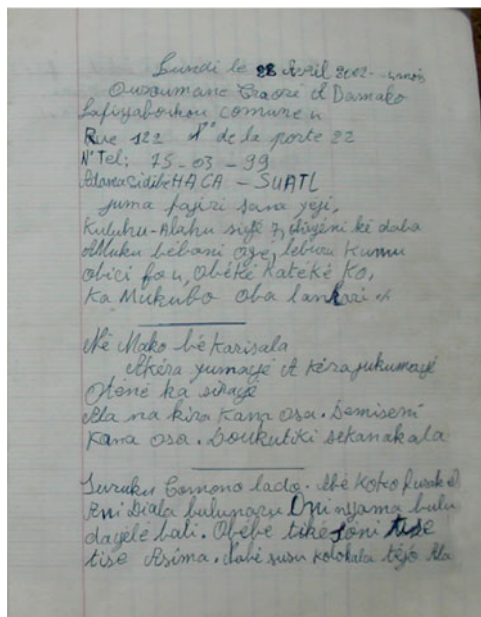 Lundi le 22 Avril 2002 - 4 mois
Ousoumane Traoré A Bamako
Lafiyabouhou comune u
Rue 122 N° de la porte 22
N° Tel: 75-03-99
Adama Sidibe HACA - SUATL
juma fajiri sana yeji,
Kuluhu-Alahu siyé 7, disyéni ké daba
Muku bébani oyé, lebisu Kumu
obici fo u, Obéké Katéké Ko,
Ka Mukubo oba lankari
Né Mako bé Karisala
Akéra yumayé A kéra jukumayé
Oténé ka sirayé
Ala na kira Kana osa. Demiseni
Kana osa. Doukutiki sekanakala
Suruku Comono lado. Abé Koto furaké
Ani Diala bulunaru Oni nyama bulu
dayélé bali. Obébé tiké Joni tise
tise Asima. Nabé susu kolokala téjo Ala